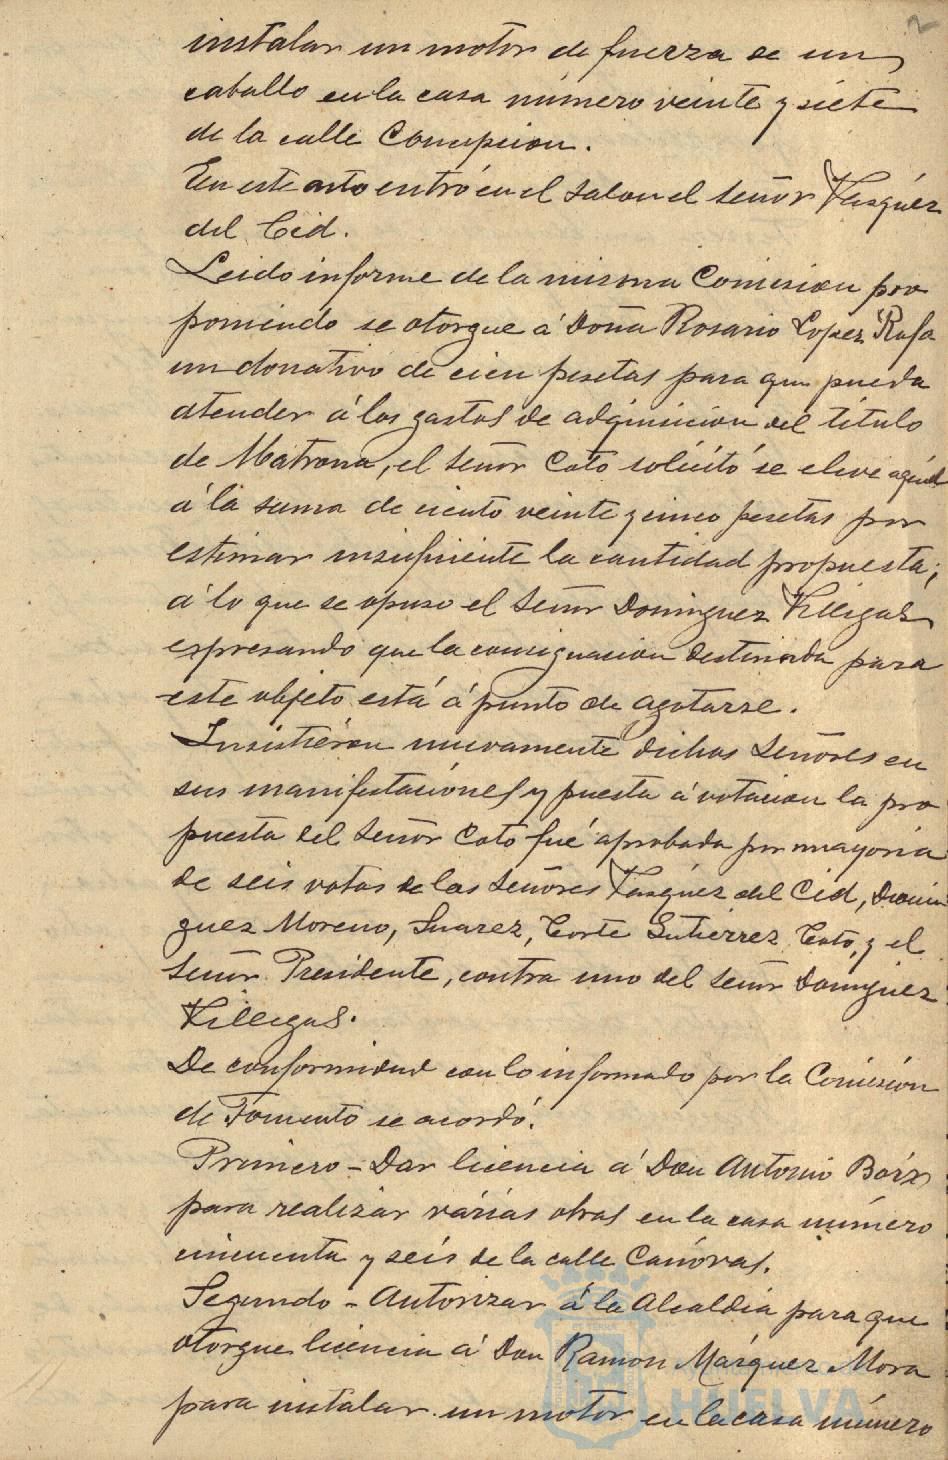 instalar un motor de fuerza de un
caballo en la casa número veinte y siete
de la calle Concepcion.
En este acto entró en el Salon el Señor Vasquéz
del Cid.
Leido informe de la misma Comision pro
poniendo se otorgue á Doña Rosario Lopez Rufo
un donativo de cien pesetas para que pueda
atender á los gastos de adquisicion del título
de Matrona, el Señor Coto solicitó se eleve aquel
á la suma de ciento veinte y cinco pesetas por
estimar insuficiente la cantidad propuesta;
á lo que se opuso el Señor Dominguez Villegas
espresando que la consignacion destinada para
este objeto está á punto de agotarse.
Insistiéron nuevamente dichos Señores en
sus manifestaciones y puesta á votacion la pro
puesta del Señor Coto fué aprobada por mayoria
de seis votos de los Señores Vasquez del Cid, Domin
guez Moreno, Suarez, Corte Gutierrez, Coto, y el
Señor Presidente, contra uno del Señor Dominguez
Villegas.
De conformidad con lo informado por la Comisión
de Fomento se acordó.
Primero - Dar licencia á Don Antonio Borz
para realizar várias obras en la casa número
cincuenta y seis de la calle Canóvas.
Segundo - Autorizar á la Alcaldia para que
otorgue licencia á Don Ramon Márquez Mora
para instalar un motor en la casa número
HUELVA